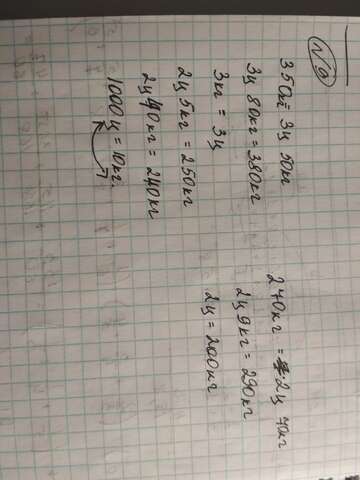 №6
350кг = 3ц 50кг
3ц 80кг = 380кг
3кг = 3ц
2ц 5кг = 250кг
2ц 40кг = 240кг
1000ц = 10кг.
270кг = 2ц 70кг
2ц 9кг = 290кг
2ц = 200кг